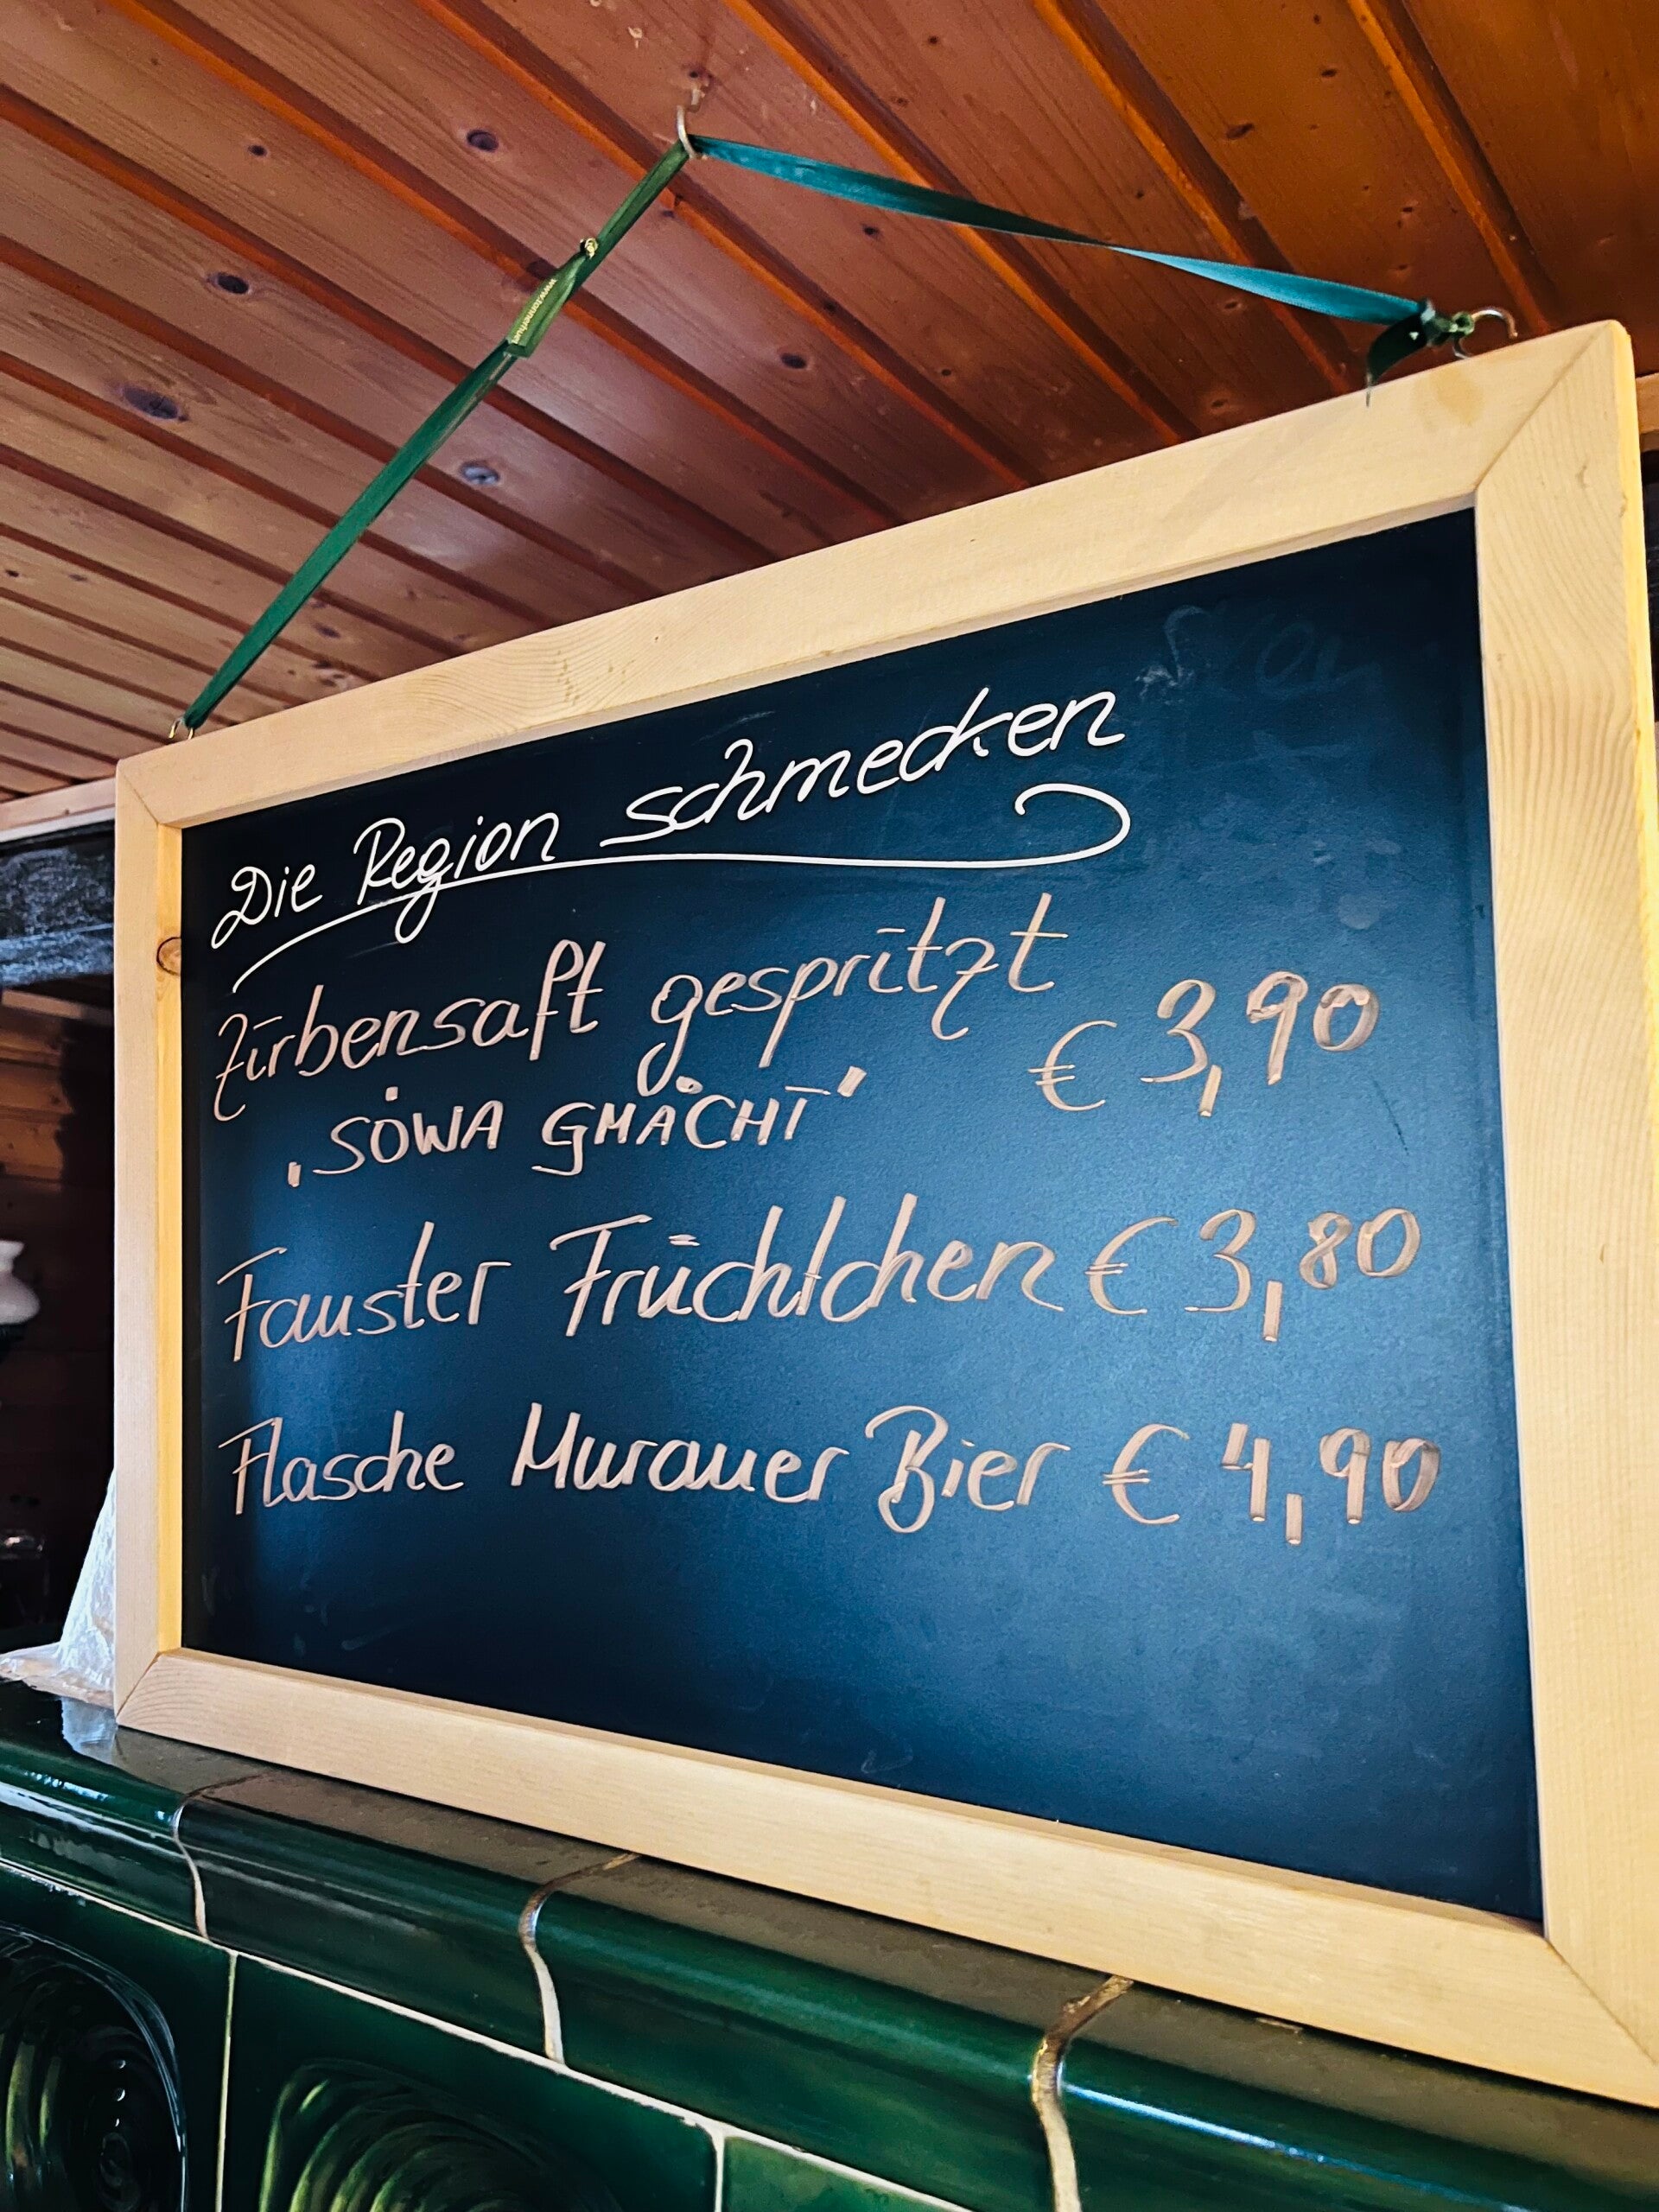 Die Region schmecken
Zirbensaft gespritzt
€ 3,90
„SÒWA GMÅCHT"
Fauster Früchtchen € 3,80
Flasche Murauer Bier € 4,90